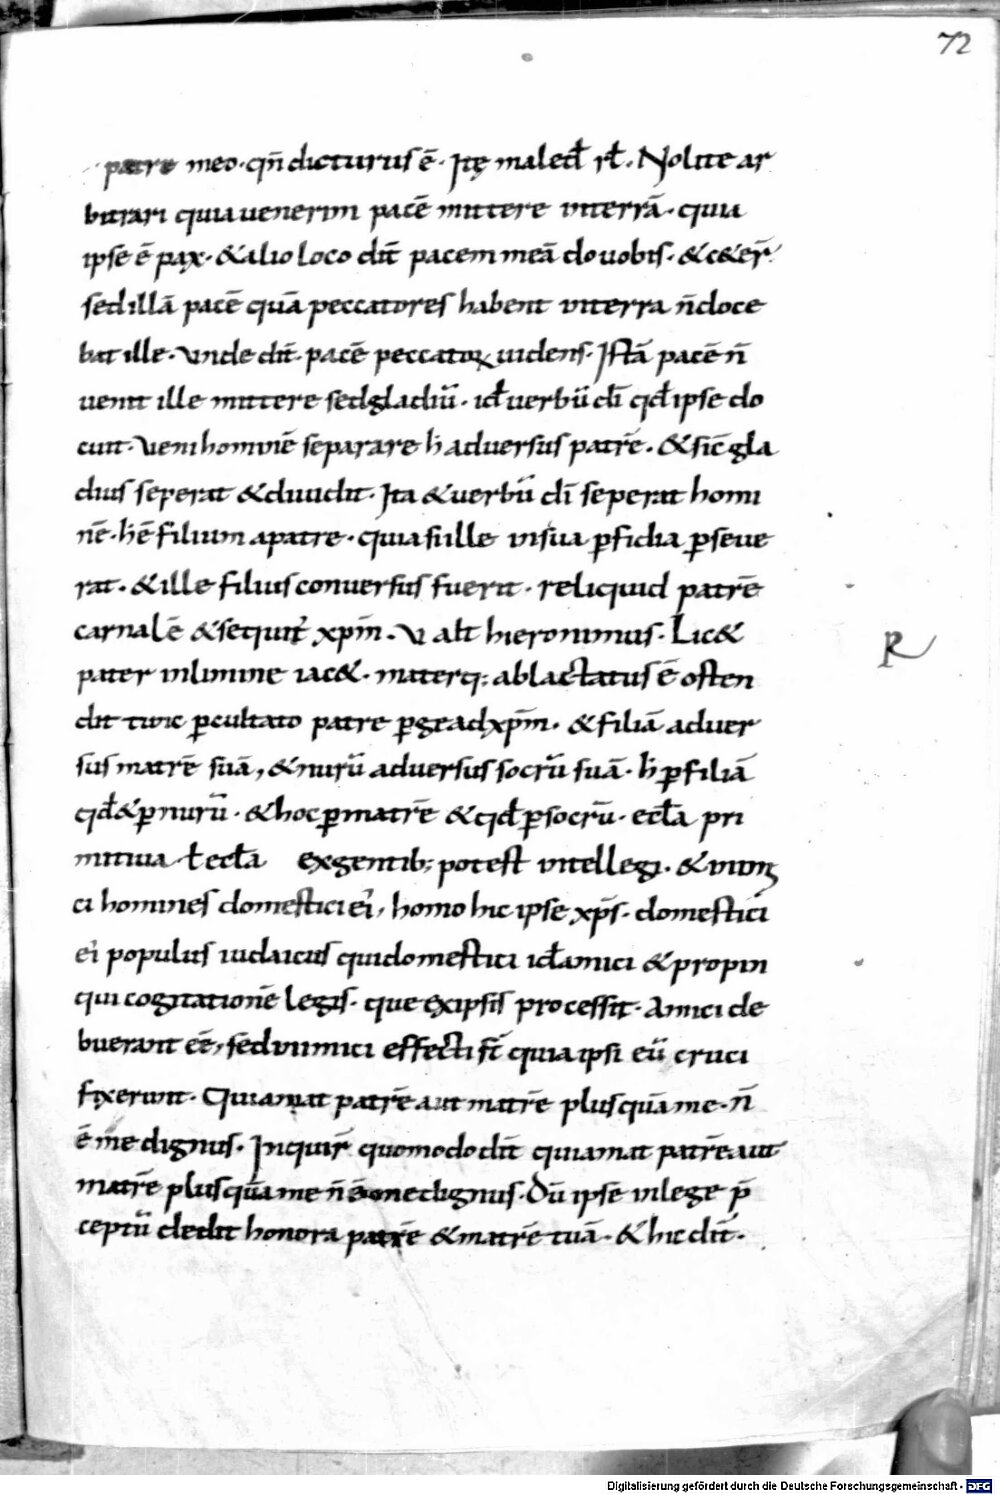 72
patre meo · qn̄ dicturus ē · Itę maled̄ rł · Nolite ar
bitrari quia uenerim pacē mittere interrā · quia
ipse ē pax · & alio loco dit̄ pacem meā do uobis · & c&er̄
sed illā pacē quā peccatores habent interra n̄ doce
bat ille · Unde dit̄ · pacē peccatoꝝ uidens · Istā pacē n̄
uenit ille mittere sed gladiū · id̄ uerbū dī qd̄ ipse do
cuit · Veni hominē separare h̄ aduersus patrē · & sic̄ gla
dius seperat & diuidit · Ita & uerbū dī seperat homi
nē · h̄ ē filium apatre · quia si ille insua ꝑfidia ꝑseue
rat · & ille filius conuersus fuerit · reliquid patrē
carnalē & sequit̄ xpm̄ · U alt̄ hieronimus · Lic&
pater inlimine iac& · materq; ablactatus ē osten
dit tunc ꝑcultato patre ꝑge adxpm̄ · & filiā aduer
sus matrē suā, & nurū aduersus socrū suā · h̄ ꝑ filiā
qd̄ & ꝑ nurū · & hoc ꝑ matrē & qd̄ ꝑ socrū · eccł̄a pri
mitiua · ł eccł̄a exgentib; potest intellegi · & inimi
ci homines domestici ei', homo hic ipse xps̄ · domestici
ei' populus iudaicus qui domestici id̄ amici & propin
qui cogitationē legis · que exipsis processit · Amici de
buerant eē, sed inimici effecti st̄ quia ipsi eū cruci
fixerunt · Qui amat patrē aut matrē plus quā me · n̄
ē me dignus · Inquir̄ quomodo dit̄ qui amat patrē aut
matrē plus quā me n̄ ē me dignus · Dū ipse inlege p̄
ceptū dedit honora patrē & matrē tuā · & hic dit̄ ·
R
Digitalisierung gefördert durch die Deutsche Forschungsgemeinschaft - DFG